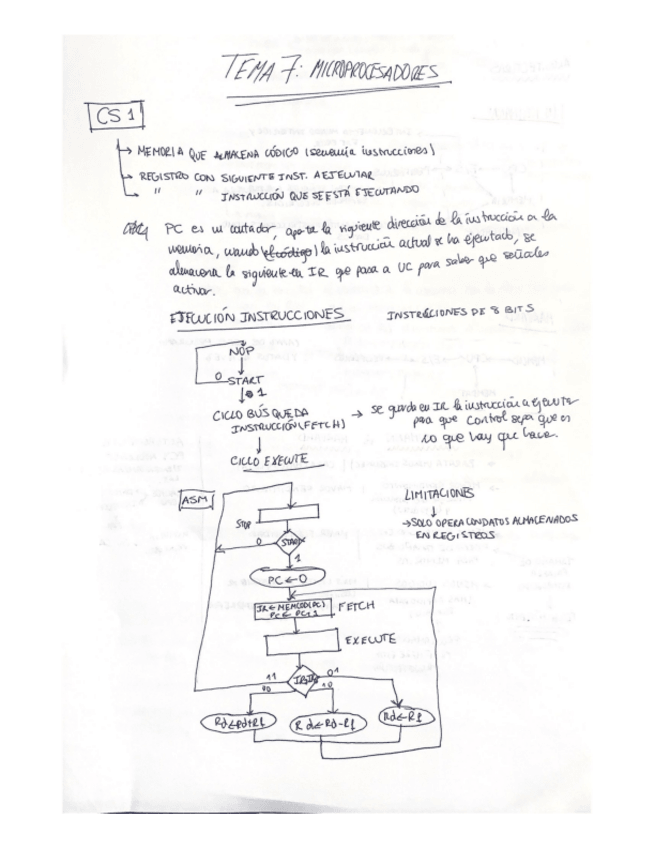 TEMA 7: MICROPROCESADORES
CS 1
→ MEMORIA QUE ALMACENA CÓDIGO (secuencia instrucciones)
→ REGISTRO CON SIGUIENTE INST. A EJECUTAR
→ " " INSTRUCCIÓN QUE SE ESTÁ EJECUTANDO
PC es un contador, aporta la siguiente dirección de la instrucción a la
memoria, cuando (el código) la instrucción actual se ha ejecutado, se
almacena la siguiente en IR que pasa a UC para saber que señales
activar.
EJECUCIÓN INSTRUCCIONES INSTRUCCIONES DE 8 BITS
NOP
0 START
1
CICLO BÚSQUEDA
INSTRUCCIÓN (FETCH) → se guarda en IR la instrucción a ejecutar
para que Control sepa que es
lo que hay que hacer.
CICLO EXECUTE
ASM
LIMITACIONES
→ SOLO OPERA CON DATOS ALMACENADOS
EN REGISTROS
STOP
0 START
1
PC ← 0
IR ← MEMCOD(PC)
PC ← PC+1
FETCH
EXECUTE
11 01
10
Rd ← Rd+Rf
Rd ← Rd-Rf
Rd ← Rf